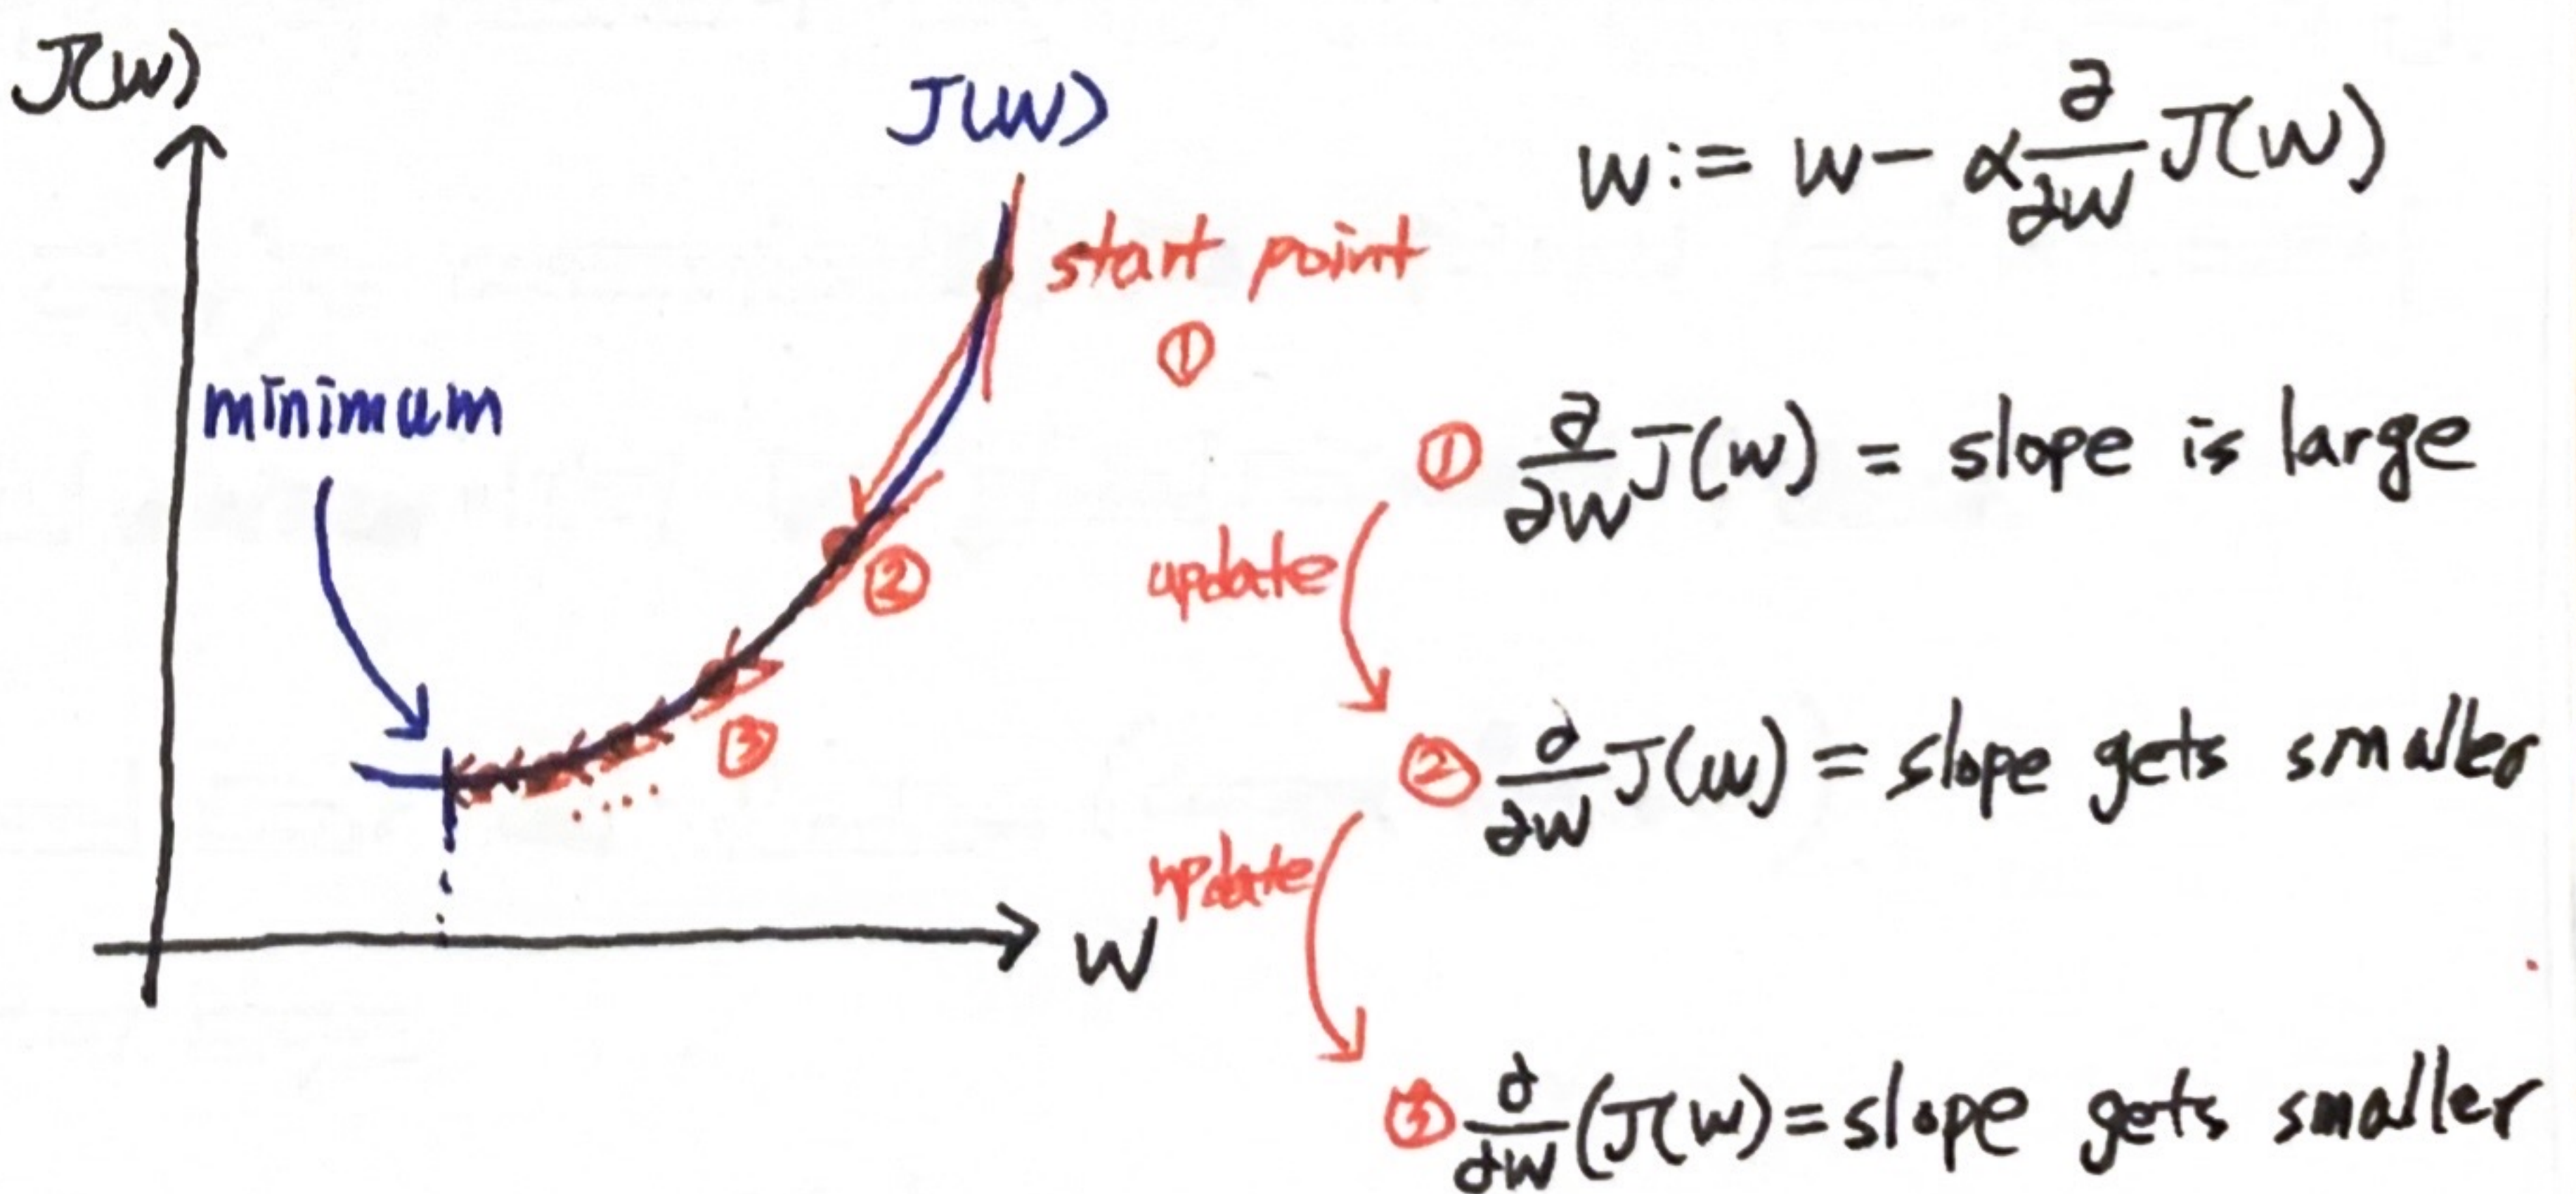 J(w)
J(w)
w := w - α ∂/∂w J(w)
start point
①
minimum
① ∂/∂w J(w) = slope is large
update
②
③
② ∂/∂w J(w) = slope gets smaller
....
update
w
③ ∂/∂w (J(w) = slope gets smaller